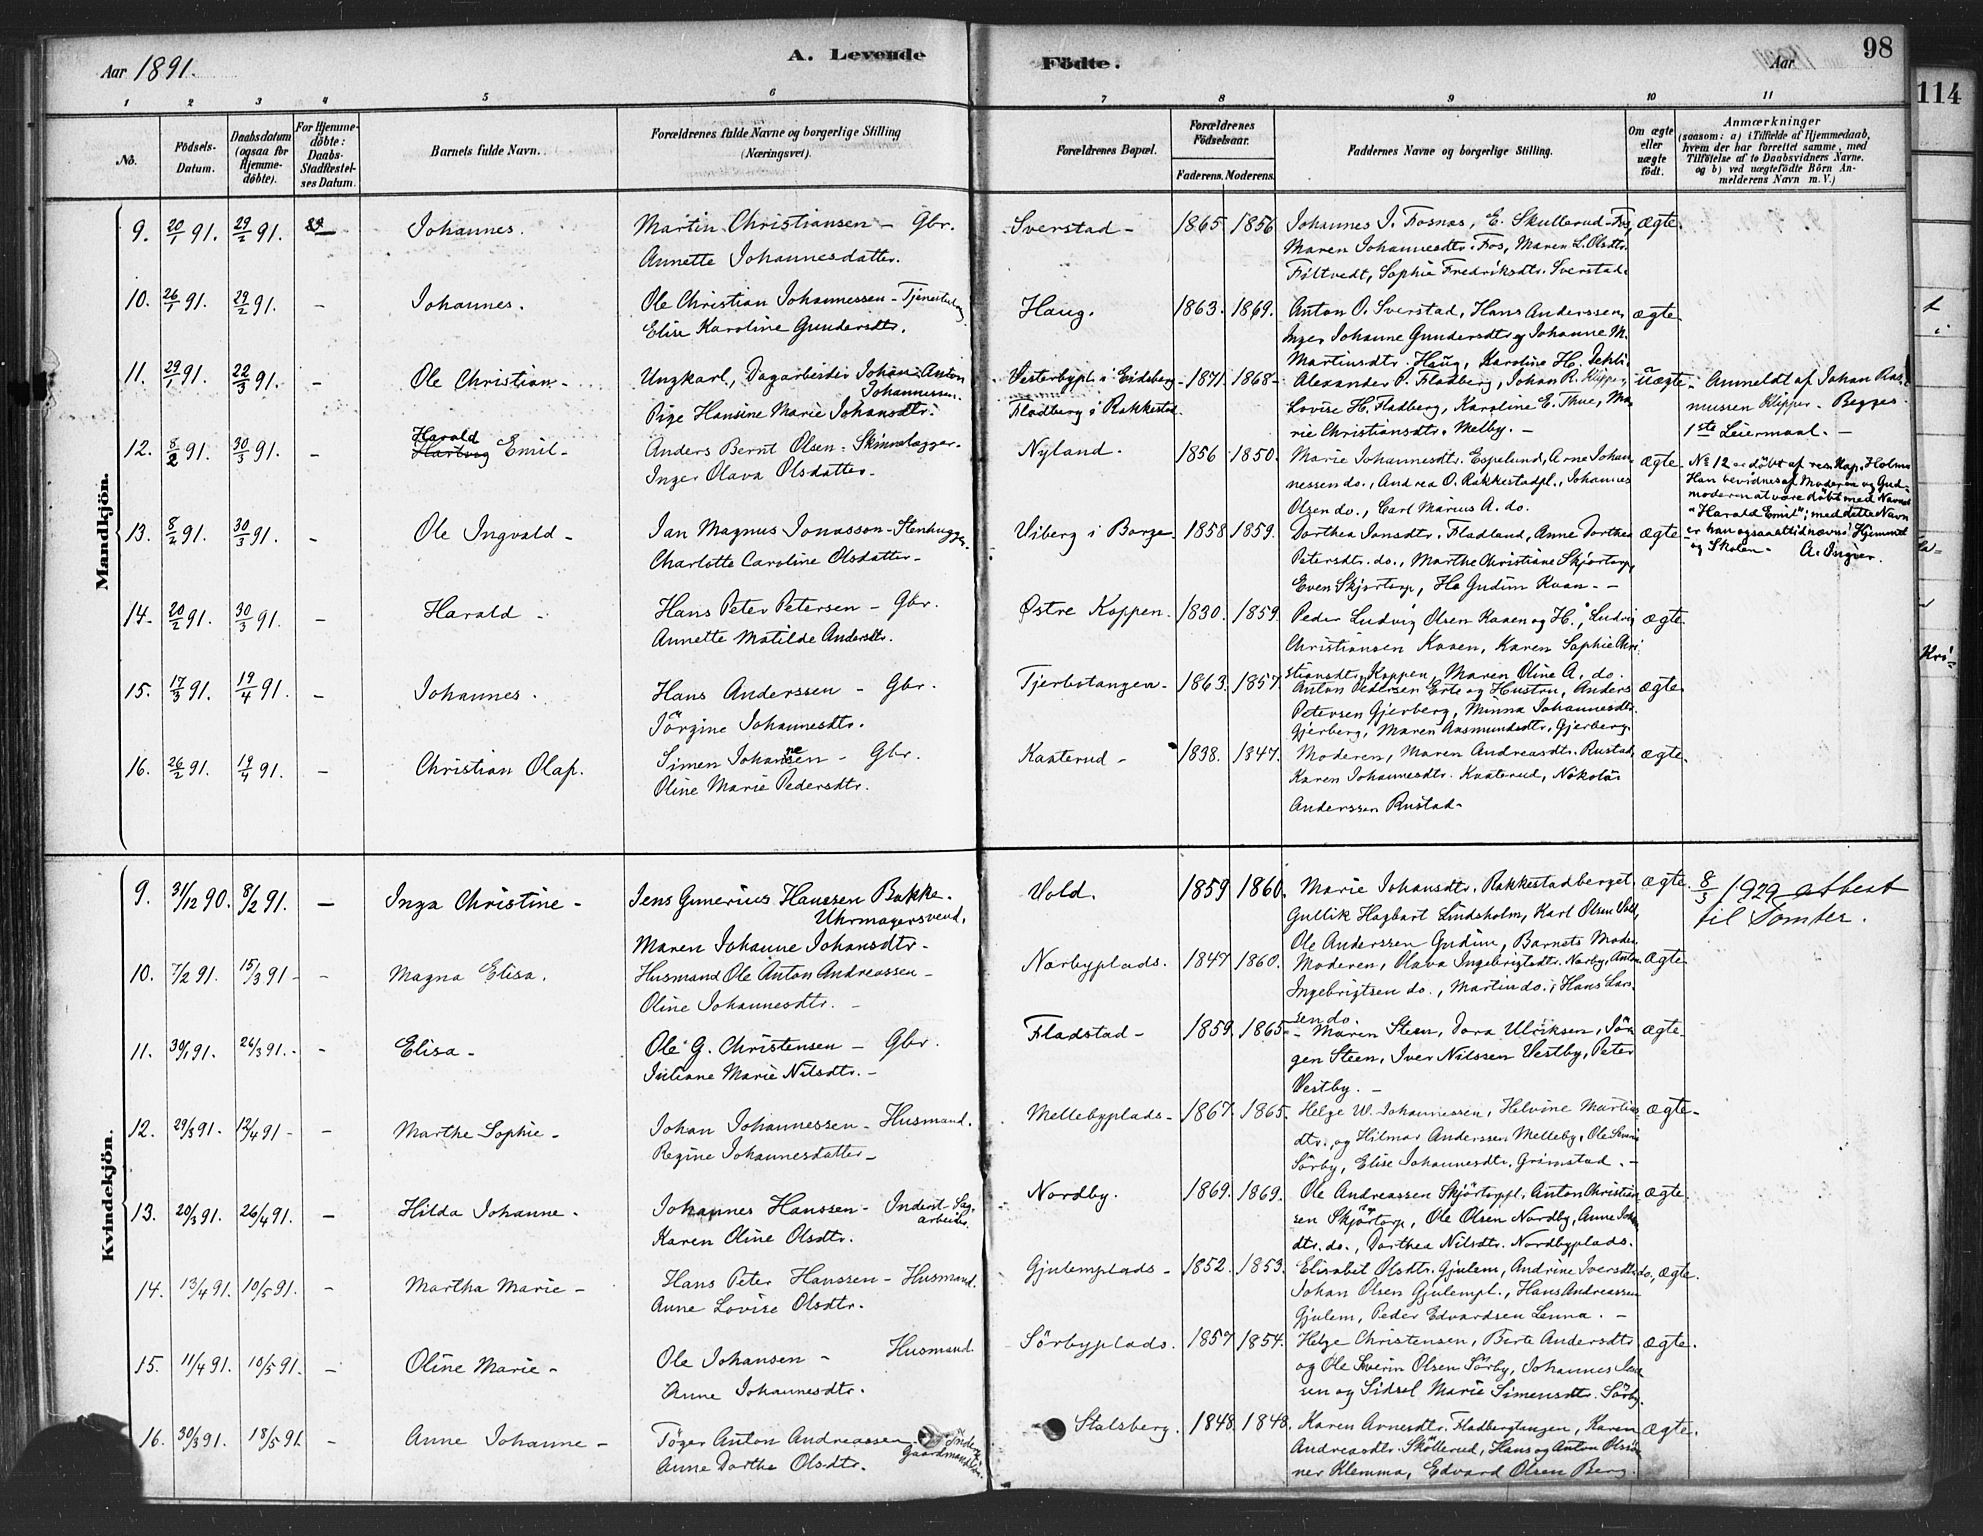 Aar 1891.
A. Levende
Födte.
Aar
98
114
1 2 3 4 5 6 7 8 9 10 11
No.
Födsels-Datum.
Daabsdatum (ogsaa for Hjemme-döbte).
For Hjemme-döbte: Daabs-Stadfæstel-ses Datum.
Barnets fulde Navn.
Forældrenes fulde Navne og borgerlige Stilling (Næringsvei).
Forældrenes Bopæl.
Forældrenes Födselsaar.
Faderens. Moderens.
Faddernes Navne og borgerlige Stilling.
Om ægte eller uægte födt.
Anmærkninger
(saasom: a) i Tilfælde af Hjemmedaab, hvem der har forrettet samme, med Tilföielse af to Daabsvidners Navne. og b) ved uægtefödte Börn An-melderens Navn m. V.)
Mandkjön.
9. 20/1 91. 29/2 91. Johannes. Martin Christiansen - Gbr. Sverstad - 1865 1856 Johannes J. Fosnæs, E. Skullerud Fos, ægte.
Annette Johannesdatter. Maren Johannesdtr. Fos, Maren L. Olsdtr.
Föltvedt, Sophie Fredriksdtr. Sverstad.
10. 26/1 91. 29/2 91. - Johannes. Ole Christian Johannessen - Haug. 1863. 1869. Anton O. Sverstad, Hans Anderssen, ægte
Elise Karoline Gundersdtr. Inger Johanne Gundersdtr og Johanne M.
Martinsdtr. Haug, Karoline H.
11. 29/1 91. 22/3 91. - Ole Christian - Ungkarl, Dagarbeider Johan Anton Johannessen. Vesterbypl. i Eidsberg - 1871. 1868 - Alexander P. Fladberg, Johan R. Klipper, uægte - Anmeldt af Johan Ras-
Pige Hansine Marie Johansdtr. Fladberg i Rakkestad. Lovise H. Fladberg, Karoline E. Thue, Ma- mussen Klipper. Begges
rie Christiansdtr. Melby. - 1ste Leiermaal. -
12. 8/2 91. 30/3 91. - Harald Hartvig Emil - Anders Bernt Olsen - Skinnelægger - Nyland. 1856 1850. Marie Johannesdtr. Espelund, Arne Johan- ægte No 12 er döbt af res. Kap. Holms
Inger Olava Olsdatter - nessen do., Andrea O. Rakkestadpl., Johannes Han bevidnes af Moderen og Gud-
Olsen do., Carl Marius A. do. moderen at være döbt med Navnet
"Harald Emil"; med dette Navn
13. 8/2 91. 30/3 91. - Ole Ingvald - Jan Magnus Jonasson - Stenhugger. Viberg i Borge 1858 1859. Dorthea Jonsdtr. Fladland, Anne Dorthea ægte er han ogsaa altid nævnt i Hjemmet
Charlotte Caroline Olsdatter - Petersdtr. do., Marthe Christiane Skjörtorp, og Skolen - A. Ingier.
Even Skjörtorp, Ho Gudim Kvan. -
14. 20/2 91. 30/3 91. - Harald - Hans Peter Petersen - Gbr. Østre Koppen. 1830. 1859. Peder Ludvig Olsen Kaaen og H., Ludvig ægte.
Annette Matilde Andersdtr. Christiansen Kaaen, Karen Sophie Chri-
stiansdtr. Koppen, Maren Oline A. do.
15. 17/3 91. 19/4 91. - Johannes. Hans Anderssen - Gbr. Tjerbstangen - 1863. 1857. Anton Pedersen Erte og Hustru, Anders ægte
Jörgine Johannesdtr. Petersen Gjerberg, Minna Johannesdtr.
Gjerberg, Maren Aasmundsdtr. Gjerberg.
16. 26/2 91. 19/4 91. - Christian Olaf. Simen Johannesen - Gbr. Kaaterud - 1838. 1847. Moderen, Maren Andreasdtr. Rustad, ægte.
Oline Marie Pedersdtr. Karen Johannesdtr. Kaaterud, Nikolai
Anderssen Rustad -
Kvindekjön.
9. 31/12 90. 8/2 91. - Inga Christine - Jens Gunerius Hansen Bakke. Vold. 1859 1860. Marie Johansdtr. Rakkestadberget ægte. 8/3 1929 attest
Uhrmagersvend. Gullik Hagbart Lindsholm, Karl Olsen Vold, til Tomter.
Maren Johanne Johansdtr. - Ole Anderssen Gudim, Barnets Moder.
10. 7/2 91. 15/3 91 - - Magna Elisa. Husmand Ole Anton Andreassen - Nærbyplads. 1847 1860. Moderen, Olava Ingebrigtsdtr. Nærby, Anton ægte
Oline Johannesdtr. - Ingebrigtsen do., Martin do., Hans Lars-
sen do.
11. 30/1 91. 26/3 91. - - Elisa - Ole G. Christensen - Gbr. Fladstad - 1859. 1865 - Maren Steen, Dora Ulriksen, Jör- ægte -
Juliane Marie Nilsdtr. - gen Steen, Iver Nilssen Vestby, Peter
Vestby. -
12. 29/3 91. 12/4 91 - - Marthe Sophie - Johan Johannessen - Husmand. Mellebyplads - 1867. 1865. Helge W. Johannessen, Helvine Martins- ægte -
Regine Johannesdatter - dtr. og Hilmar Anderssen Melleby, Ole Severin
Sörby, Elise Johannesdtr. Grimstad. -
13. 20/3 91. 26/4 91. - Hilda Johanne. Johannes Hanssen - Inderst Sag-arbeider. Nordby. 1869. 1869. Ole Andreassen Skjörtorppl., Anton Christian- ægte.
Karen Oline Olsdtr. sen Skjörtorp, Ole Olsen Nordby, Anne Joh.
dtr. do., Dorthea Nilsdtr. Nordbyplads.
14. 13/4 91. 10/5 91. - Martha Marie - Hans Peter Hanssen - Husmand. Gjulemplads - 1852. 1853. Elisabet Olsdtr. Gjulem, Andrine Iversdtr. do, ægte.
Anne Lovise Olsdtr. Johan Olsen Gjulempl., Hans Andreassen
Gjulem, Peder Edvardsen Lunna. -
15. 11/4 91. 10/5 91. - Oline Marie - Ole Johansen - Husmand. Sörbyplads. 1857 1854. Helge Christensen, Berte Andersdtr. ægte.
Anne Johannesdtr. og Ole Severin Olsen Sörby, Johannes Jen-
sen og Sidsel Marie Simensdtr. Sörby.
16. 30/3 91. 18/5 91 - Anne Johanne - Töger Anton Andreassen Stalsberg. 1848. 1848. Karen Arnesdtr. Fladbergtangen, Karen ægte.
Anne Dorthe Olsdtr. Andreasdtr. Sköllerud, Hans og Anton Olssön-
ner Klemma, Edvard Olsen Berg.